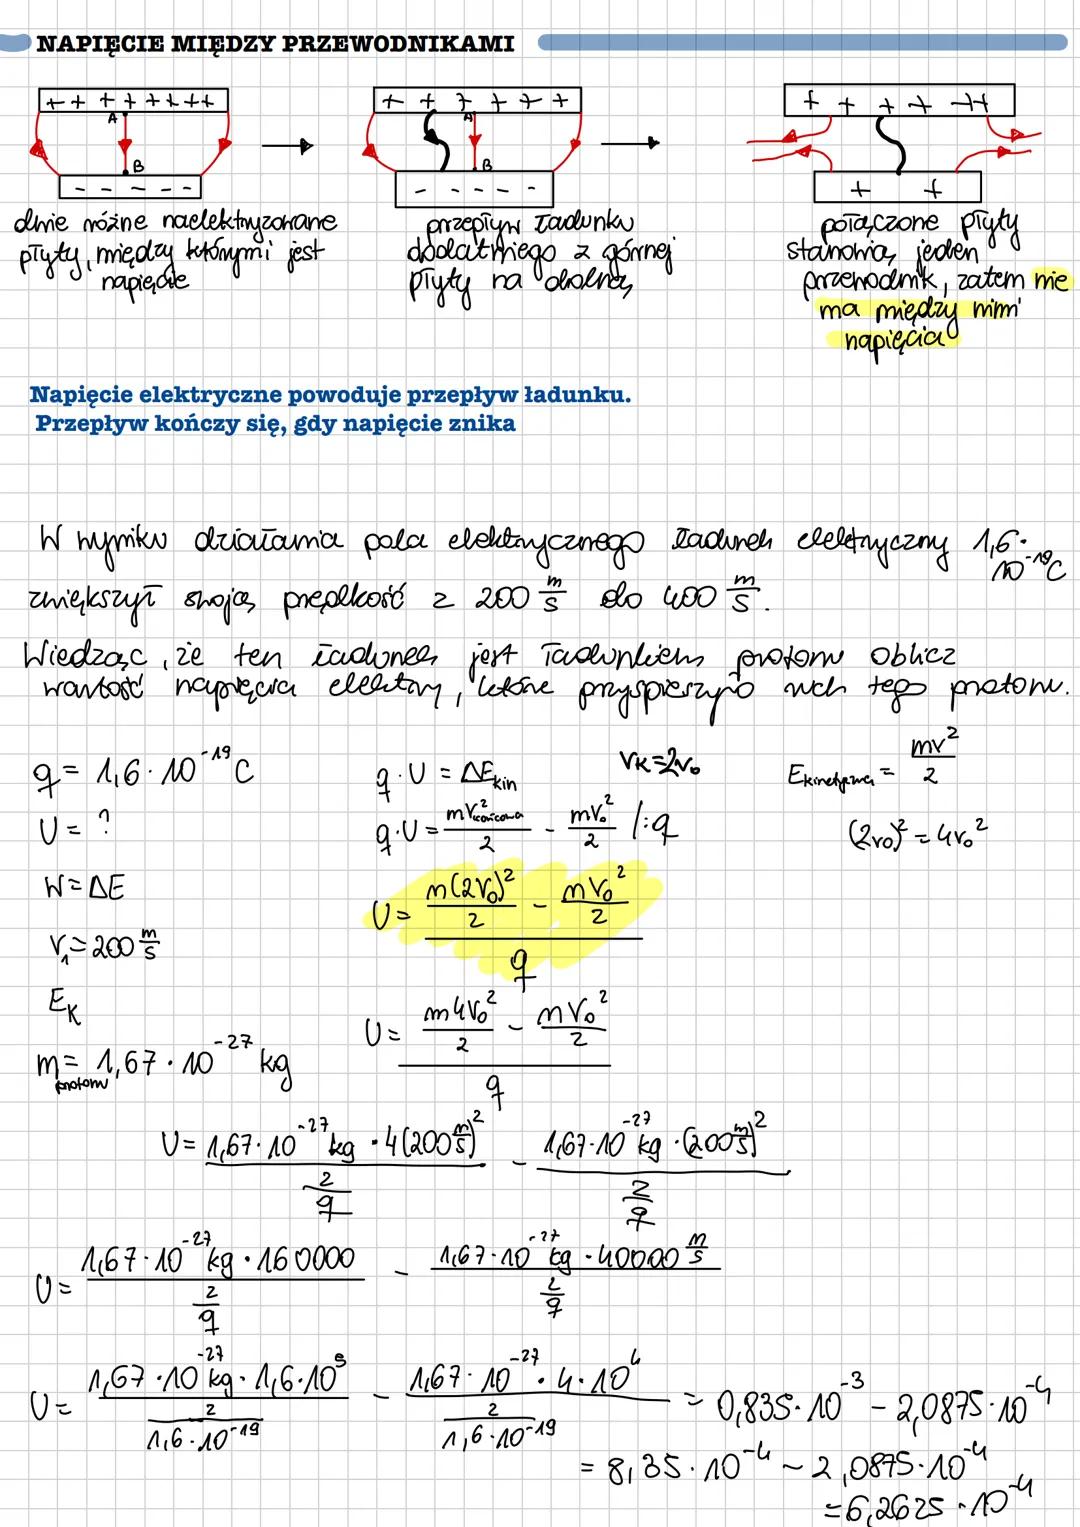 NAPIĘCIE MIĘDZY PRZEWODNIKAMI
+ + + + + + + +
A
B
- - - - - -
+ + + + + +
A
B
- - - - -
+ + + + + +
+ +
dwie różne naelektryzowane
płyty, między którymi jest
napięcie
przepływ ładunku
dodatniego z górnej
płyty na dolną
połączone płyty
stanowią jeden
przewodnik, zatem nie
ma między nimi
napięcia
Napięcie elektryczne powoduje przepływ ładunku.
Przepływ kończy się, gdy napięcie znika
W wyniku działania pola elektrycznego ładunek elektryczny 1,6 · 10^-19 C
zwiększył swoją prędkość z 200 m/s do 400 m/s.
Wiedząc, że ten ładunek jest ładunkiem protonu oblicz
wartość napięcia elektry, które przyspieszyło ruch tego protonu.
q = 1,6 · 10^-19 C
U = ?
W = ΔE
V₁ = 200 m/s
E_K
m protonu = 1,67 · 10^-27 kg
q · U = ΔE_kin
V_K = 2V₀
q · U = mV²końcowa/2 - mV₀²/2 /:q
U = (m(2V₀)²/2 - mV₀²/2) / q
U = (m4V₀²/2 - mV₀²/2) / q
E kinetyczna = mv²/2
(2V₀)² = 4V₀²
U = 1,67 · 10^-27 kg · 4(200 m/s)² / 2/q - 1,67 · 10^-27 kg · (200 m/s)² / 2/q
U = 1,67 · 10^-27 kg · 160000 / 2/q - 1,67 · 10^-27 kg · 40000 m/s / 2/q
U = 1,67 · 10^-27 kg · 1,6 · 10^5 / 2/1,6 · 10^-19 - 1,67 · 10^-27 · 4 · 10^4 / 2/1,6 · 10^-19 = 0,835 · 10^-3 - 2,0875 · 10^-4
= 8,35 · 10^-4 - 2,0875 · 10^-4
= 6,2625 · 10^-4